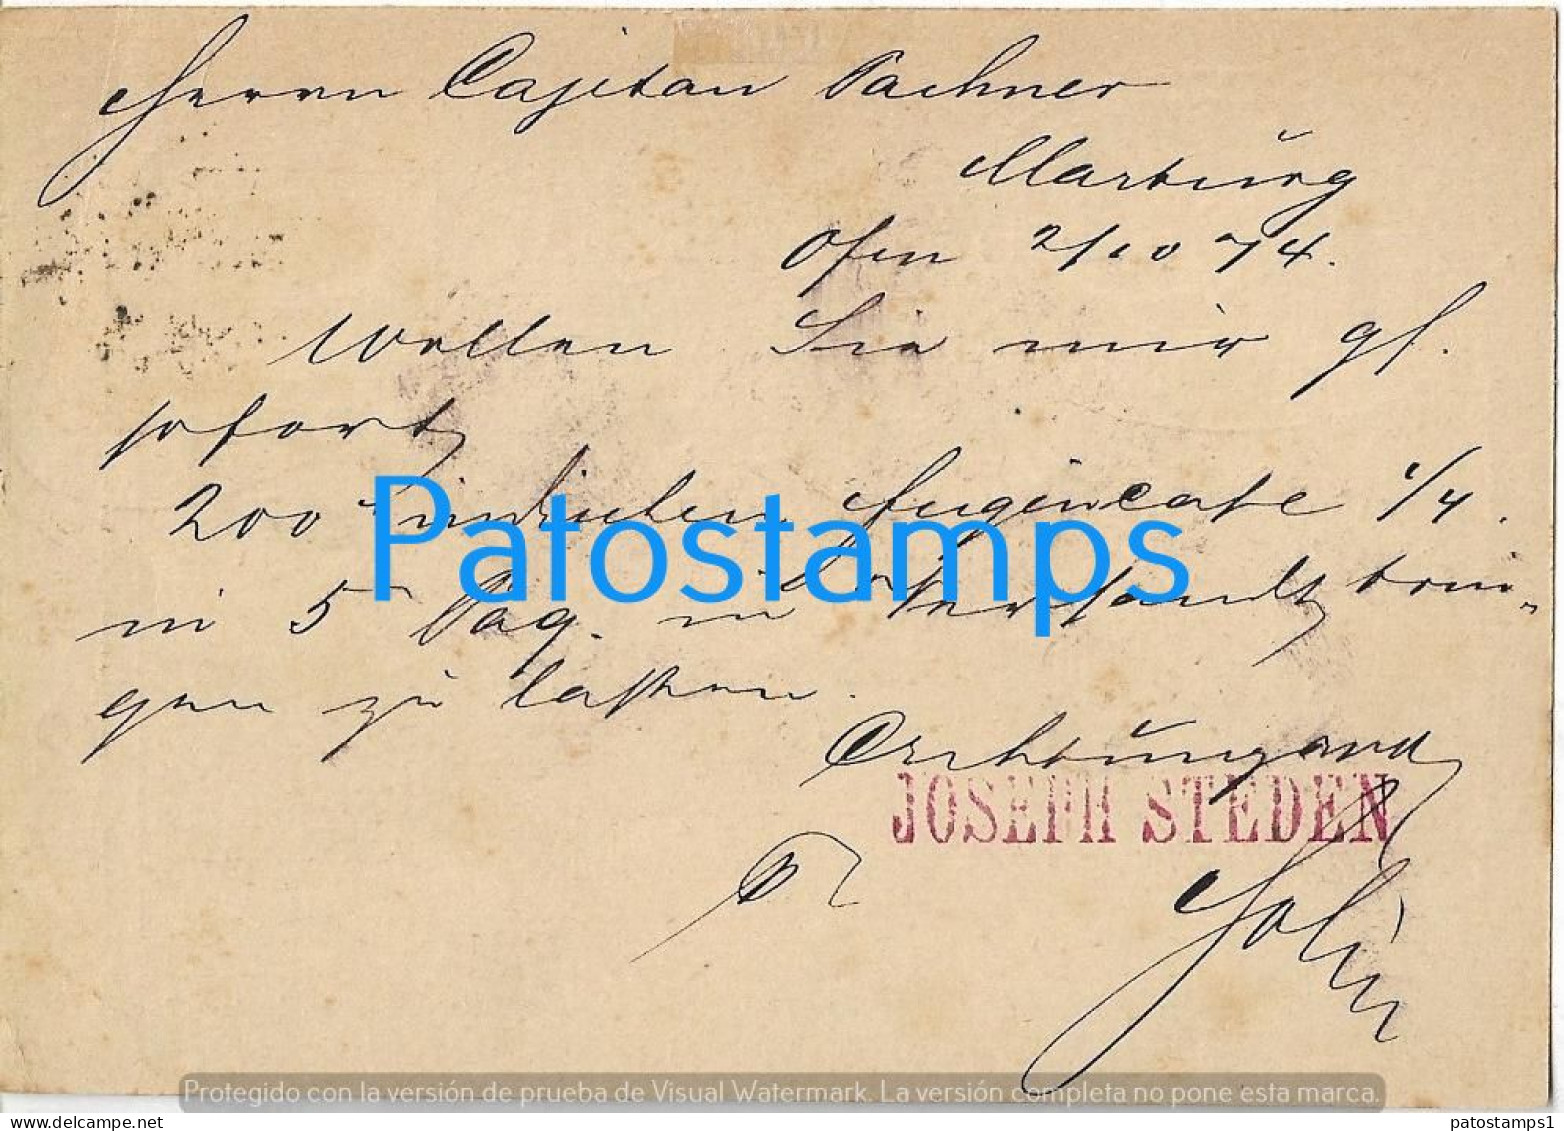 Herrn Cajetan Pachner
Marburg
Ofen 2/10 74.
Wollen Sie mir gf.
sofort
200 1/4.
in 5 Paq. in Versandt brin-
gen zu lassen.
Achtungsvoll
JOSEPH STEDEN
Patostamps
Protegido con la versión de prueba de Visual Watermark. La versión completa no pone esta marca.
patostamps1